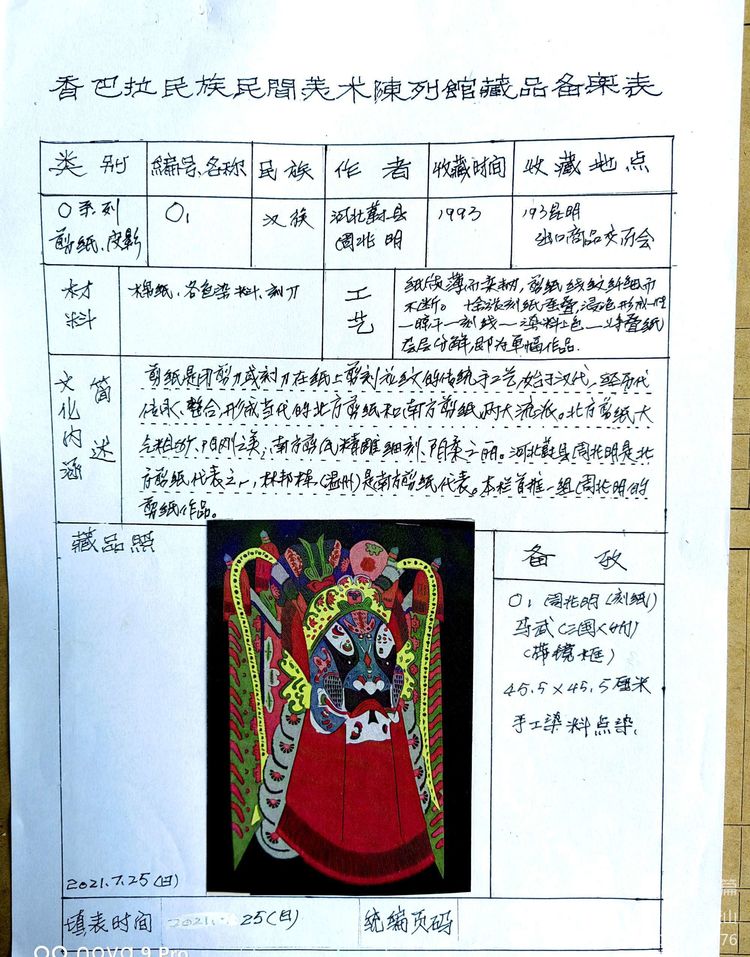 香巴拉民族民間美术陳列館藏品备案表
类别 編号、名称 民族 作者 收藏时间 收藏地点
O系列 O₁ 汉族 河北蔚县 1993 193昆明
剪纸、皮影 周兆明 出口商品交易会
材料 棉纸、各色染料、刻刀
工艺 纸质薄而柔韧，剪纸线纹纤细而
不断。十余张刻纸重叠，浸泡形成一性
一晾干一刻线一染料上色一
层层分解，即为单幅作品.
文化内涵 简述
剪纸是用剪刀或刻刀在纸上剪刻花纹的传统手工艺，始于汉代，经历代
整合，形成当代的北方剪纸和南方剪纸两大流派。北方剪纸大
气粗犷、阳刚之美，南方剪纸精雕细刻、阴柔之丽。河北蔚县周兆明是北
方剪纸代表之一，林邦栋（温州）是南方剪纸代表。本栏首推一组周兆明的
剪纸作品。
藏品照
备攷
O₁ 周兆明（刻纸）
马武（三国人物）
（裱镜框）
45.5×45.5厘米
手工染料点染.
2021.7.25(日)
填表时间 2021. 25(日) 统编页码
篇
山
76
nova 9 Pro